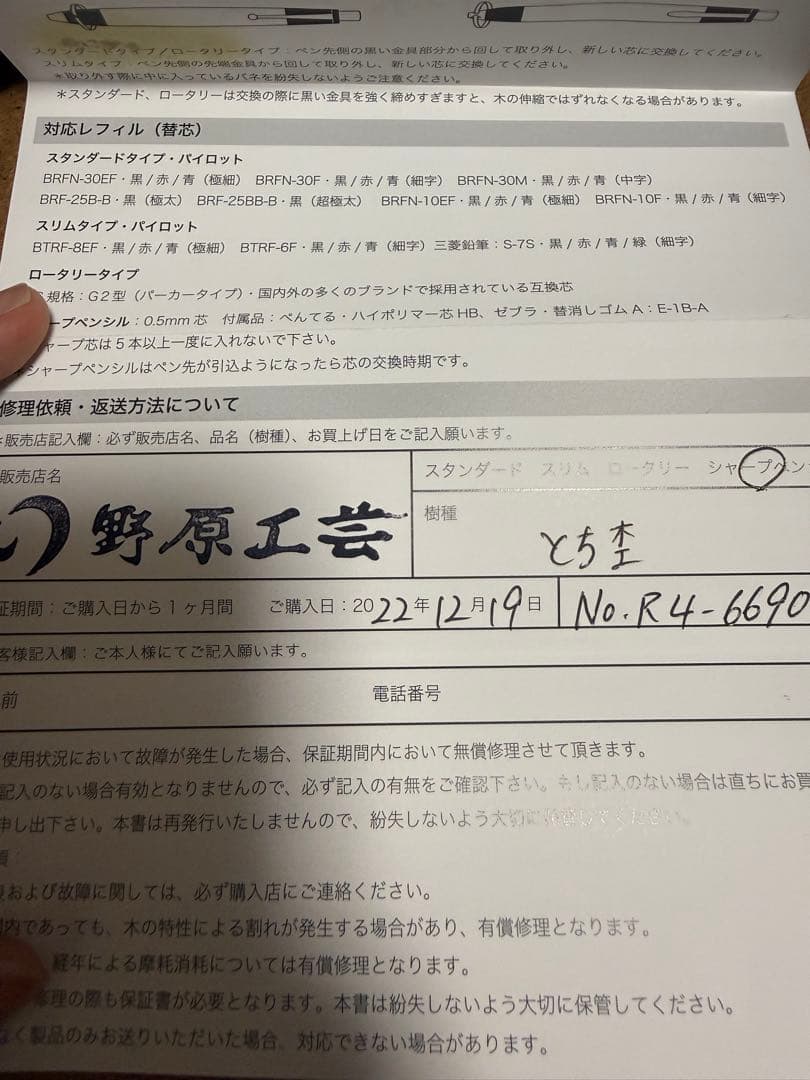 スタンダードタイプ/ロータリータイプ：ペン先側の黒い金具部分から回して取り外し、新しい芯に交換してください。
スリムタイプ：ペン先側の先端金具から回して取り外し、新しい芯に交換してください。
＊取り外す際に中に入っているバネを紛失しないようご注意ください。
＊スタンダード、ロータリーは交換の際に黒い金具を強く締めすぎますと、木の伸縮ではずれなくなる場合があります。
対応レフィル（替芯）
スタンダードタイプ・パイロット
BRFN-30EF・黒/赤/青（極細） BRFN-30F・黒/赤/青（細字） BRFN-30M・黒/赤/青（中字）
BRF-25B-B・黒（極太） BRF-25BB-B・黒（超極太） BRFN-10EF・黒/赤/青（極細） BRFN-10F・黒/赤/青（細字）
スリムタイプ・パイロット
BTRF-8EF・黒/赤/青（極細） BTRF-6F・黒/赤/青（細字）三菱鉛筆：S-7S・黒/赤/青/緑（細字）
ロータリータイプ
規格：G2型（パーカータイプ）・国内外の多くのブランドで採用されている互換芯
ープペンシル：0.5mm芯 付属品：ぺんてる・ハイポリマー芯HB、ゼブラ・替消しゴムA：E-1B-A
ャープ芯は5本以上一度に入れないで下さい。
シャープペンシルはペン先が引込ようになったら芯の交換時期です。
修理依頼・返送方法について
＊販売店記入欄：必ず販売店名、品名（樹種）、お買上げ日をご記入願います。
販売店名
スタンダード スリム ロータリー シャープペン
野原工芸
樹種
とち杢
証期間：ご購入日から1ヶ月間 ご購入日：2022年12月19日 No.R4-6690
客様記入欄：ご本人様にてご記入願います。
前 電話番号
使用状況において故障が発生した場合、保証期間内において無償修理させて頂きます。
記入のない場合有効となりませんので、必ず記入の有無をご確認下さい。もし記入のない場合は直ちにお買
申し出下さい。本書は再発行いたしませんので、紛失しないよう大切に保管してください。
および故障に関しては、必ず購入店にご連絡ください。
内であっても、木の特性による割れが発生する場合があり、有償修理となります。
経年による摩耗消耗については有償修理となります。
修理の際も保証書が必要となります。本書は紛失しないよう大切に保管してください。
なく製品のみお送りいただいた場合、対応できない場合があります。